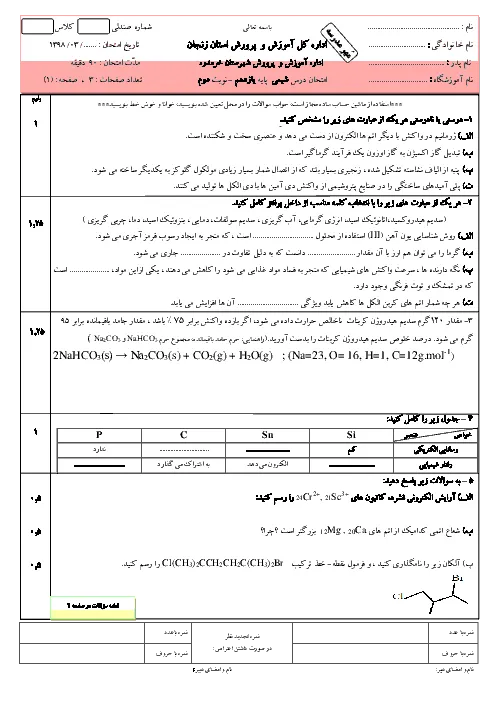 نام : ........................................
باسمه تعالی
شماره صندلی
کلاس
نام خانوادگی : ........................
اداره کل آموزش و پرورش استان زنجان
تاریخ امتحان : ...... /۰۳/ ۱۳۹۸
مهر مدرسه
نام پدر : ................................
اداره آموزش و پرورش شهرستان خرمدره
مدّت امتحان : ۹۰ دقیقه
نام آموزشگاه : ........................
امتحان درس شیمی پایه یازدهم - نوبت دوم
تعداد صفحات : ۳ ، صفحه : (۱)
***استفاده از ماشین حساب ساده مجاز است. جواب سوالات را در محل تعیین شده بنویسید، خوانا و خوش خط بنویسید.***
بارم
۱- درستی یا نادرستی هر یک از عبارت های زیر را مشخص کنید.
۱
الف) ژرمانیم در واکنش با دیگر اتم ها الکترون از دست می دهد و عنصری سخت و شکننده است.
ب) تبدیل گاز اکسیژن به گاز اوزون یک فرآیند گرماگیر است.
پ) پنبه از الیاف نشاسته تشکیل شده ، زنجیری بسیار بلند که از اتصال شمار بسیار زیادی مولکول گلوکز به یکدیگر ساخته می شود.
ت) پلی آمیدهای ساختگی را در صنایع پتروشیمی از واکنش دی آمین ها با دی الکل ها تولید می کنند.
۲- هر یک از عبارت های زیر را با انتخاب کلمه مناسب از داخل پرانتز کامل کنید.
۱,۲۵
(سدیم هیدروکسید، اتانوئیک اسید، انرژی گرمایی، آب گریزی ، سدیم سولفات، دمایی ، بنزوئیک اسید، دما، چربی گریزی )
الف) روش شناسایی یون آهن (III) استفاده از محلول ........................ است ، که منجر به ایجاد رسوب قرمز آجری می شود.
ب) گرما را می توان هم ارز با آن مقدار .................... دانست که به دلیل تفاوت در ................. جاری می شود.
پ) نگه دارنده ها ، سرعت واکنش های شیمیایی که منجر به فساد مواد غذایی می شود را کاهش می دهند ، یکی از این مواد، ................. است
که در تمشک و توت فرنگی وجود دارد.
ت) هر چه شمار اتم های کربن الکل ها کاهش یابد ویژگی ........................ آن ها افزایش می یابد.
۳- مقدار ۱۲۰ گرم سدیم هیدروژن کربنات ناخالص حرارت داده می شود، اگر بازده واکنش برابر ۷۵ ٪ باشد ، مقدار جامد باقیمانده برابر ۹۵
۱,۲۵
گرم می شود. درصد خلوص سدیم هیدروژن کربنات را بدست آورید.(راهنمایی: جرم جامد باقیمانده = مجموع جرم NaHCO3 و Na2CO3 )
2NaHCO3(s) → Na2CO3(s) + CO2(g) + H2O(g) ; (Na=23, O= 16, H=1, C=12g.mol-1)
۴ – جدول زیر را کامل کنید:
۱
خواص عنصر Si Sn C P
رسانایی الکتریکی کم .................... ندارد
رفتار شیمیایی الکترون می دهد به اشتراک می گذارد
۵ – به سوالات زیر پاسخ دهید:
الف) آرایش الکترونی فشرده کاتیون های 24Cr2+, 21Sc3+ را رسم کنید:
۰,۵
ب) شعاع اتمی کدامیک از اتم های 12Mg , 20Ca بزرگتر است ؟چرا؟
۰,۵
پ) آلکان زیر را نامگذاری کنید ، و فرمول نقطه – خط ترکیب Cl(CH3)2CCH2CH2C(CH3)2Br را رسم کنید.
۰,۵
Br
Cl
ادامه سؤالات در صفحه 2
نمره با عدد
نمره تجدید نظر
نمره با عدد
در صورت داشتن اعتراض:
نمره با حروف
نمره با حروف
نام و امضای دبیر:
نام و امضای دبیر: